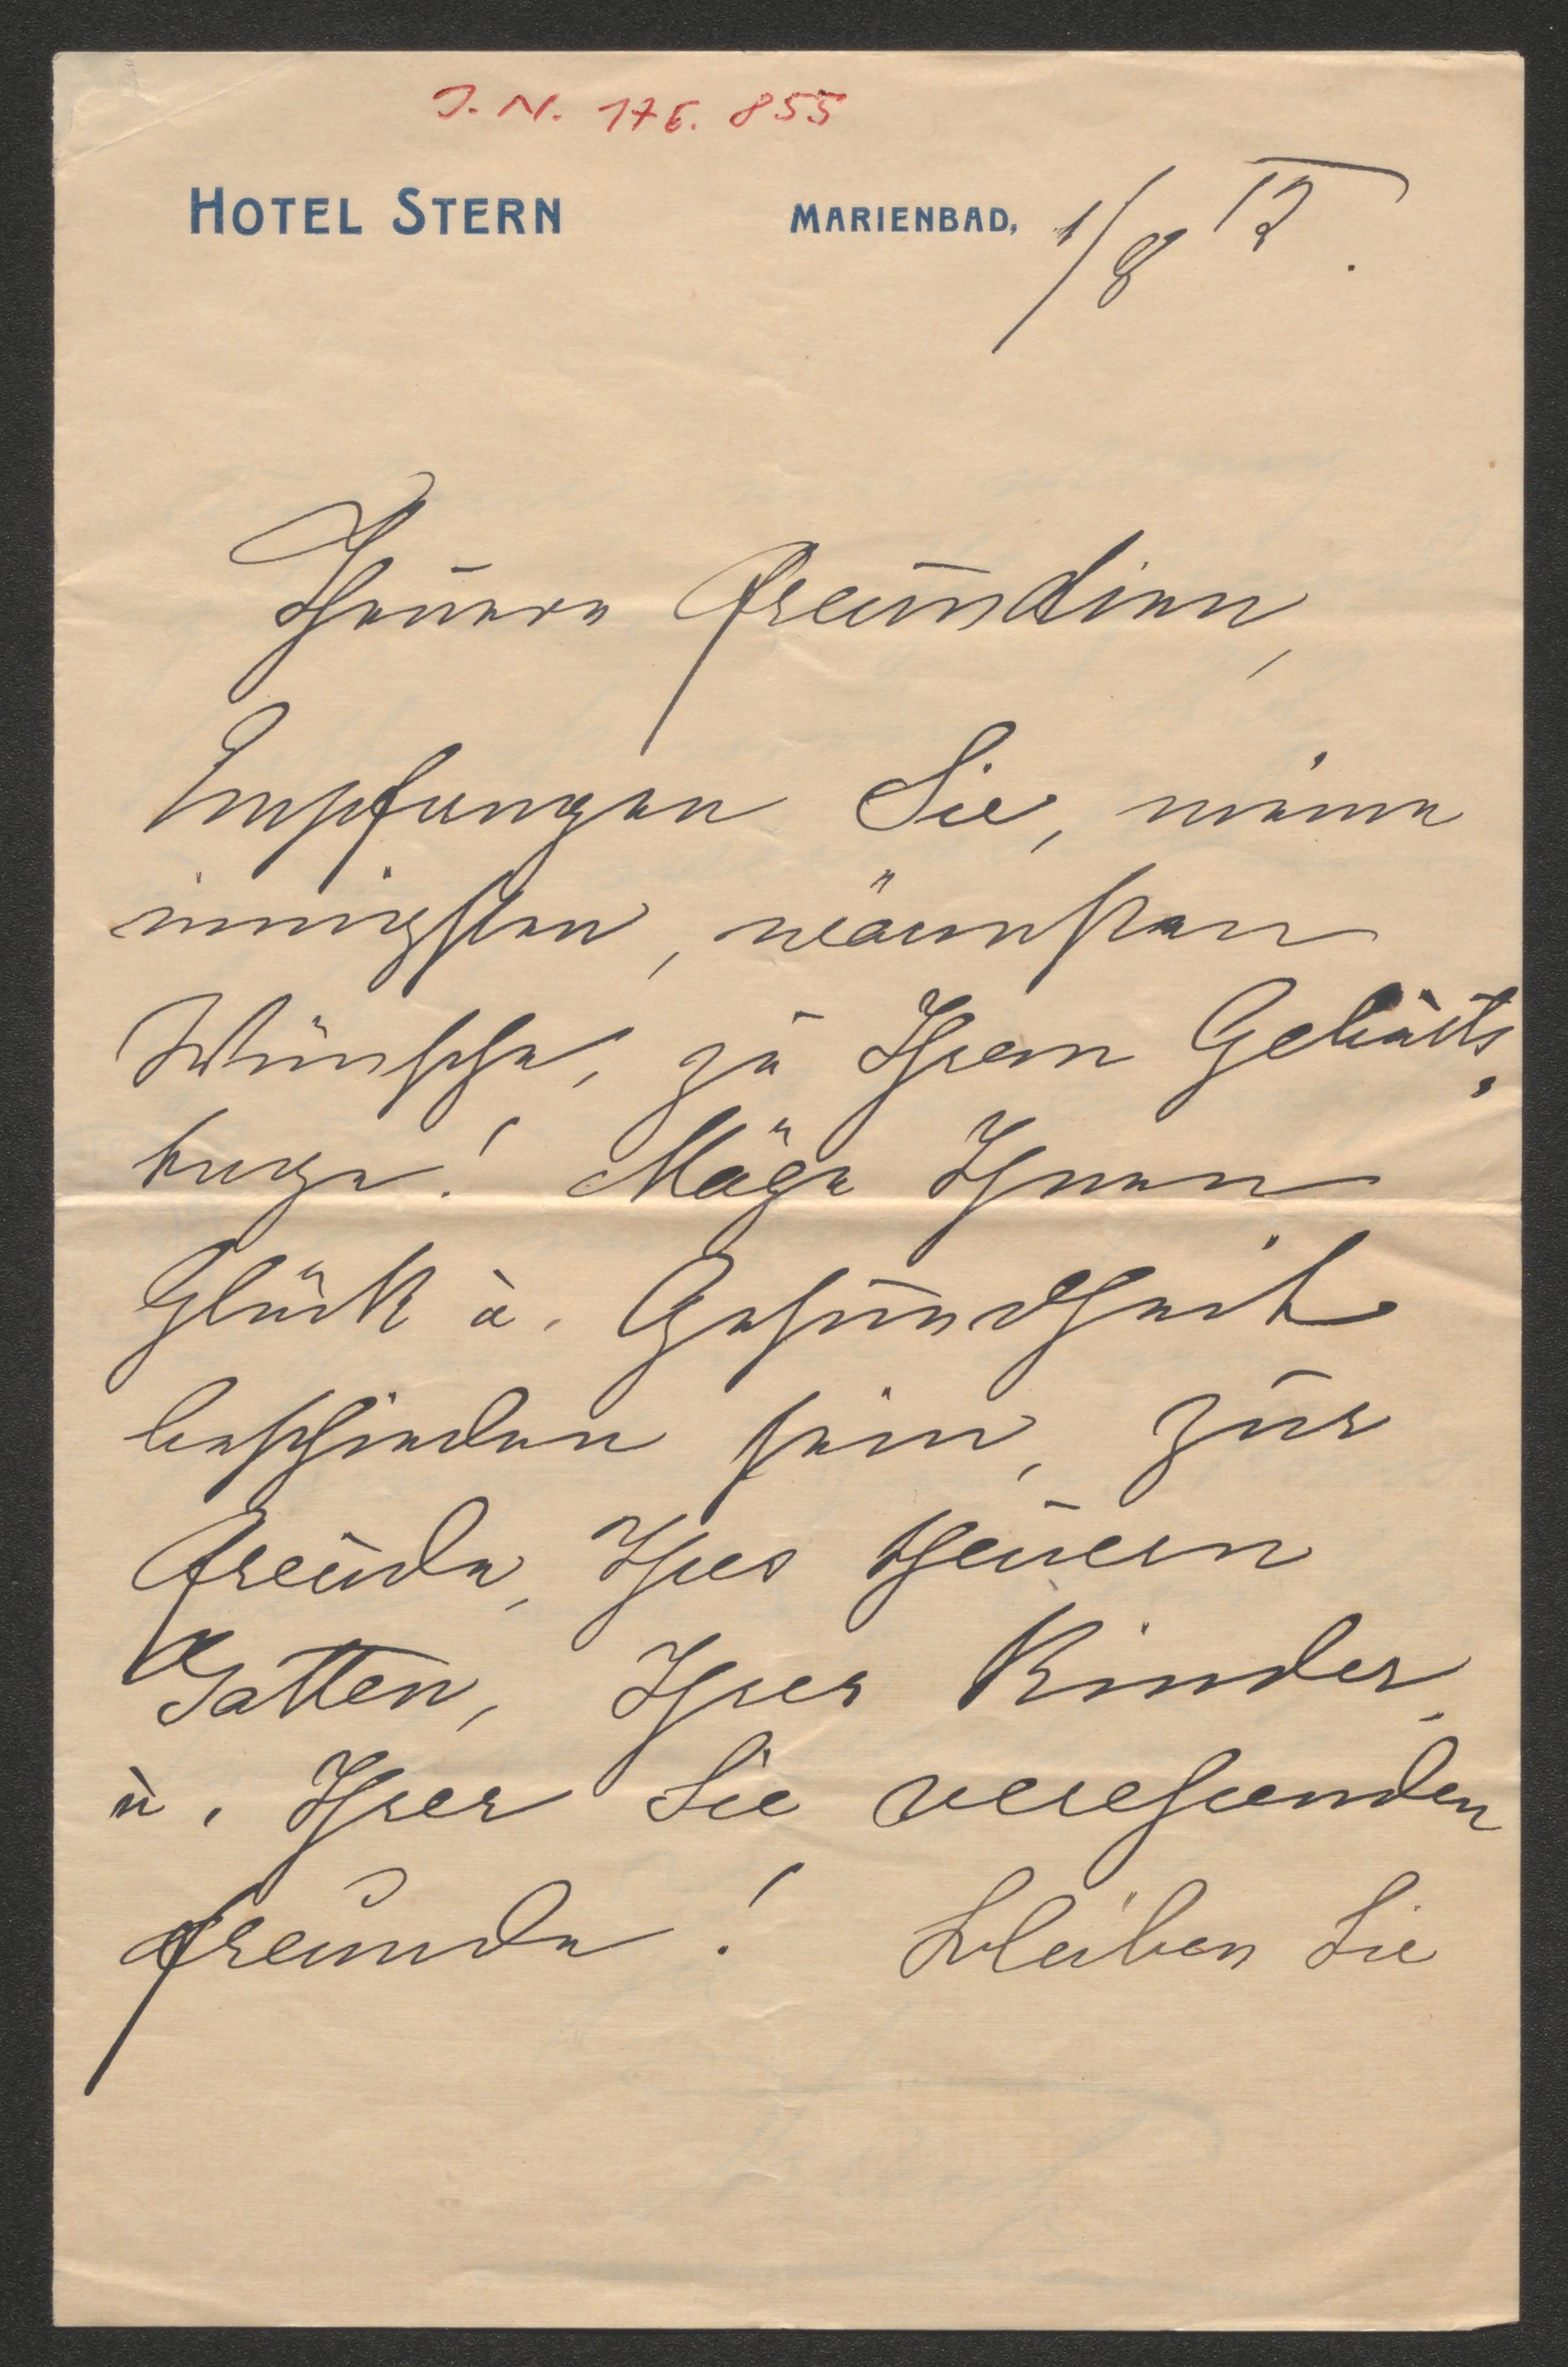 J. N. 176. 855
HOTEL STERN MARIENBAD, 1/8 12.
Theuere Freundinn,
Empfangen Sie, meine
innigsten, wärmsten
Wünsche, zu Ihrem Geburts-
tage! Möge Ihnen
Glück u. Gesundheit
beschieden sein, zur
Freude, Ihres theuern
Gatten, Ihrer Kinder
u. Ihrer Sie verehrenden
Freunde! Bleiben Sie